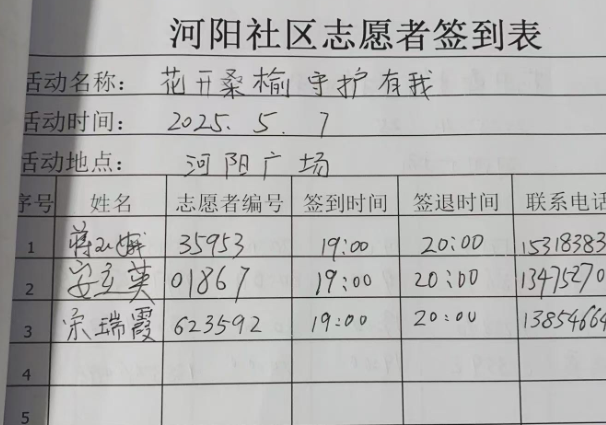 河阳社区志愿者签到表
活动名称： 花开桑榆 守护有我
活动时间： 2025. 5. 7
活动地点： 河阳广场
序号 姓名 志愿者编号 签到时间 签退时间 联系电话
1 35953 19:00 20:00 15318383
2 安立英 01867 19:00 20:00 13475270
3 宗瑞霞 623592 19:00 20:00 13854664
4
5